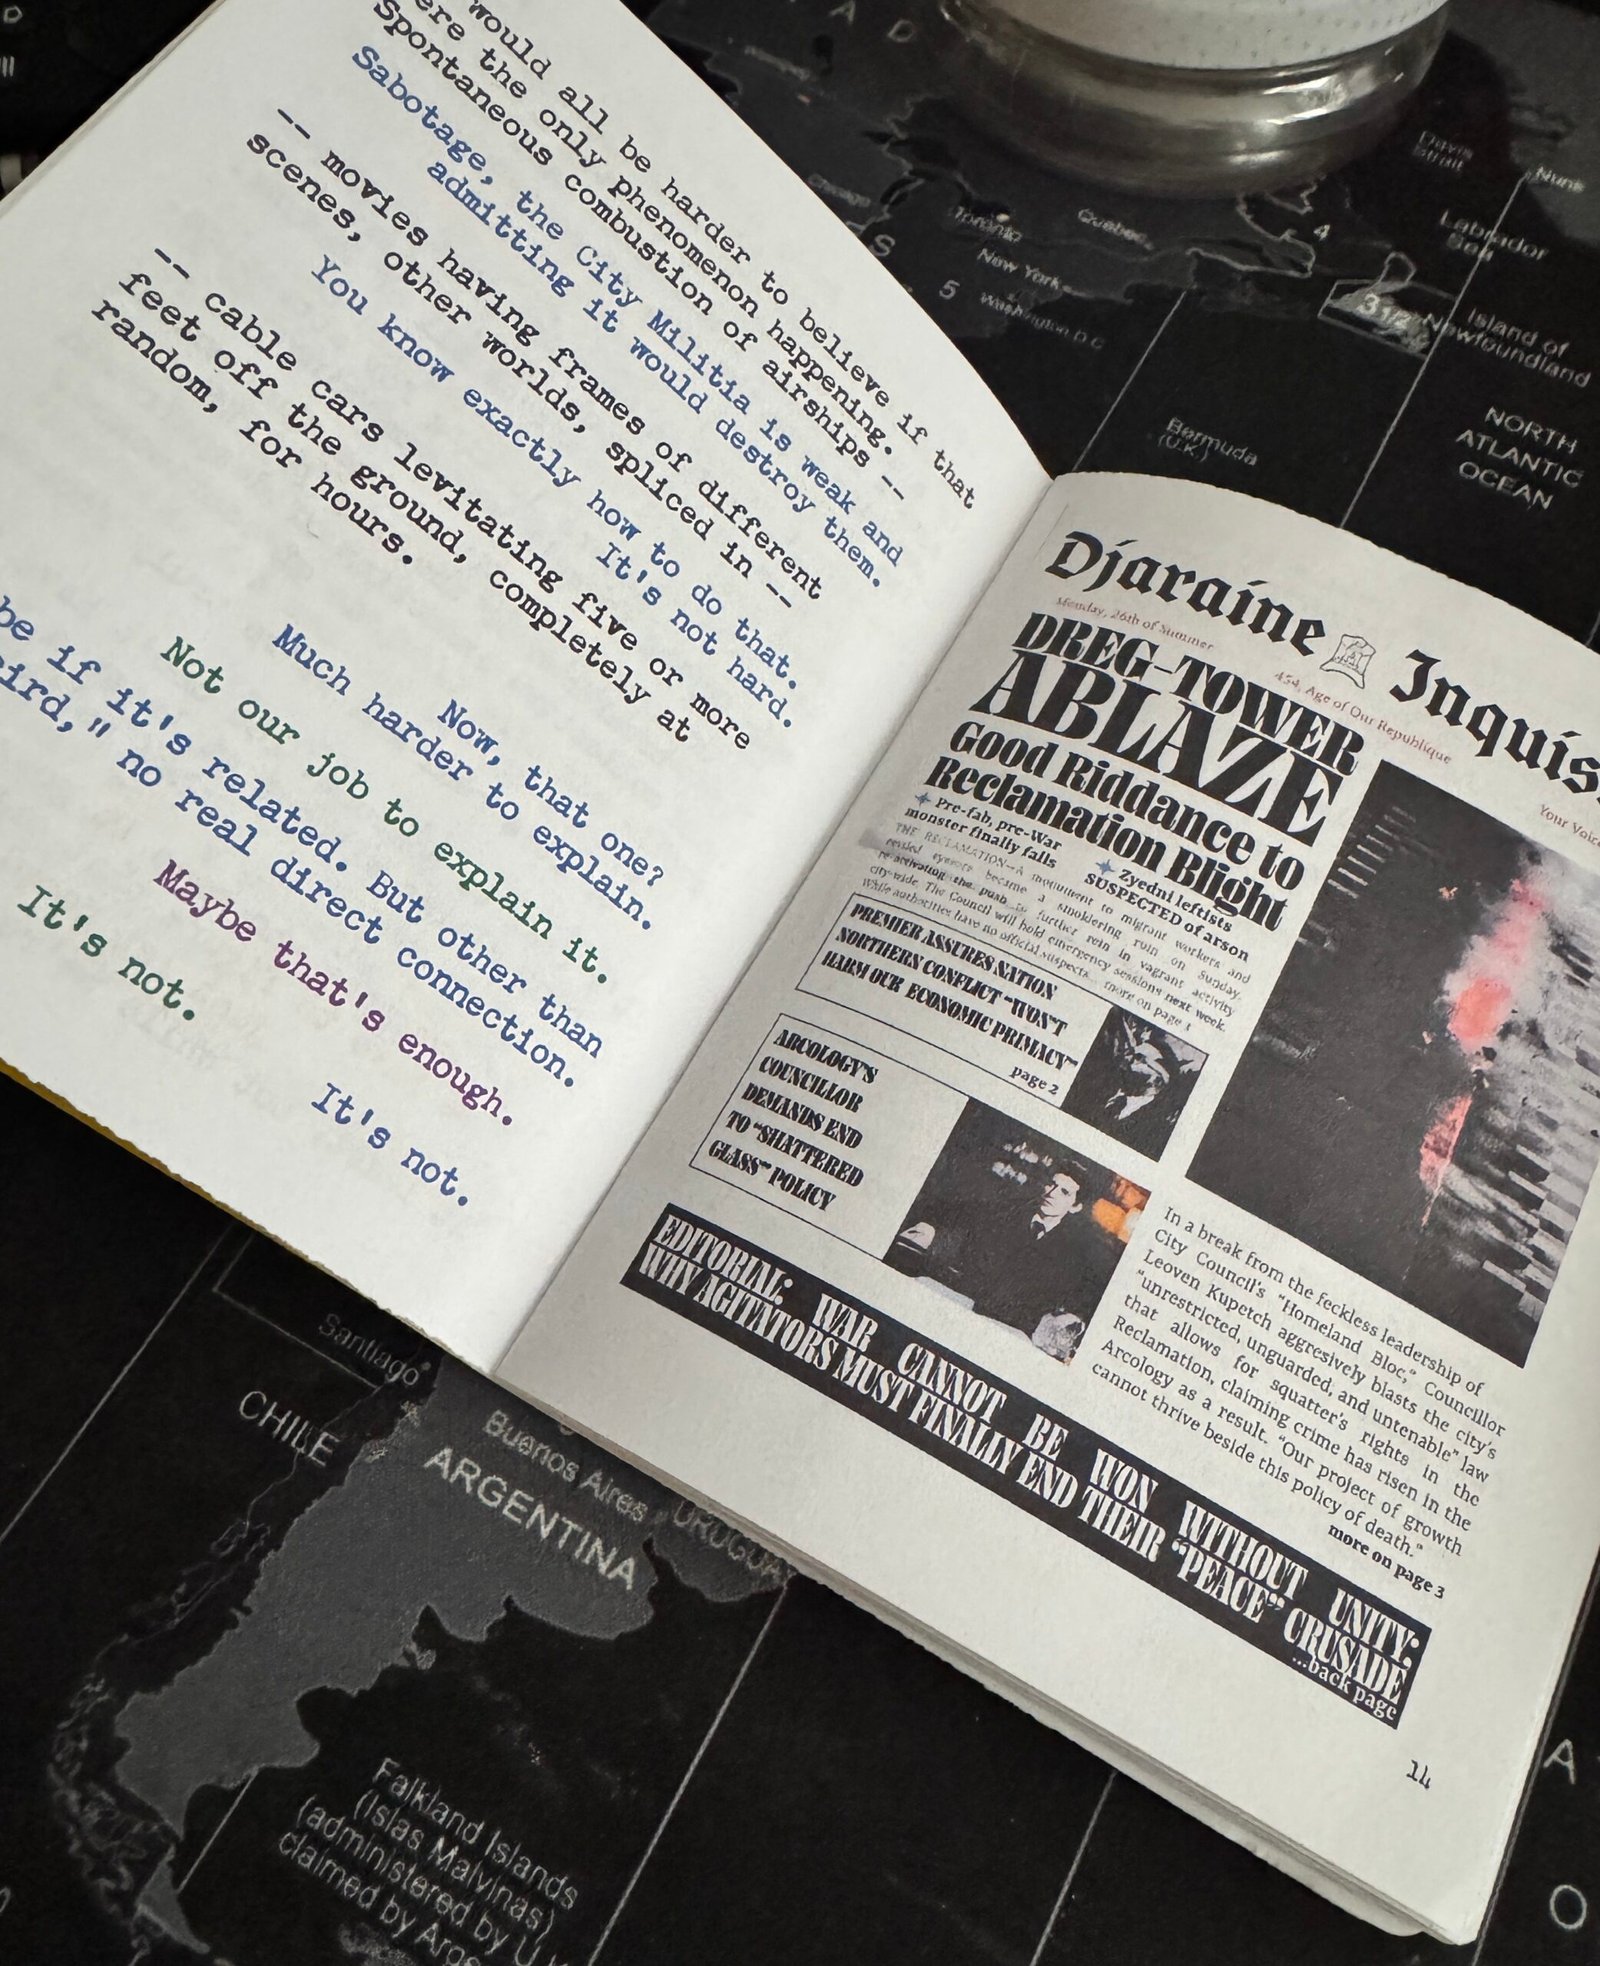 would all be harder to believe if that
ere the only phenomenon happening.
Spontaneous combustion of airships --
Sabotage, the City Militia is weak and
admitting it would destroy them.
-- movies having frames of different
scenes, other worlds, spliced in --
You know exactly how to do that.
It's not hard.
-- cable cars levitating five or more
feet off the ground, completely at
random, for hours.
Now, that one?
Much harder to explain.
Not our job to explain it.
be if it's related. But other than
eird," no real direct connection.
Maybe that's enough.
It's not.
It's not.
Djaraine Inquis
Monday, 26th of Summer
454, Age of Our Republique
Your Voice
DREG-TOWER
ABLAZE
Good Riddance to
Reclamation Blight
Pre-fab, pre-War
monster finally falls
Zyedni leftists
SUSPECTED of arson
THE RECLAMATION—A monument to migrant workers and
eyesores became a smoldering ruin on Sunday,
re-activating the push to further rein in vagrant activity
city-wide. The Council will hold emergency sessions next week.
While authorities have no official suspects... more on page 1
PREMIER ASSURES NATION
NORTHERN CONFLICT "WON'T
HARM OUR ECONOMIC PRIMACY"
page 2
ARCOLOGY'S
COUNCILLOR
DEMANDS END
TO "SHATTERED
GLASS" POLICY
In a break from the feckless leadership of
City Council's "Homeland Bloc," Councillor
Leoven Kupetch aggresively blasts the city's
"unrestricted, unguarded, and untenable" law
that allows for squatter's rights in the
Reclamation, claiming crime has risen in the
Arcology as a result. "Our project of growth
cannot thrive beside this policy of death."
more on page 3
EDITORIAL: WAR CANNOT BE WON WITHOUT UNITY:
WHY AGITATORS MUST FINALLY END THEIR "PEACE" CRUSADE
...back page
14
A D
Davis
Strait
Nuuk
Labrador
Sea
Chicago
Toronto
Quebec
New York
Washington D.C.
S
5
4
3 1/2
Island of
Newfoundland
Bermuda
(U.K.)
NORTH
ATLANTIC
OCEAN
Santiago
CHILE
Buenos Aires
ARGENTINA
URUGUA
Falkland Islands
(Islas Malvinas)
(administered by U.K
claimed by Arge
A
O